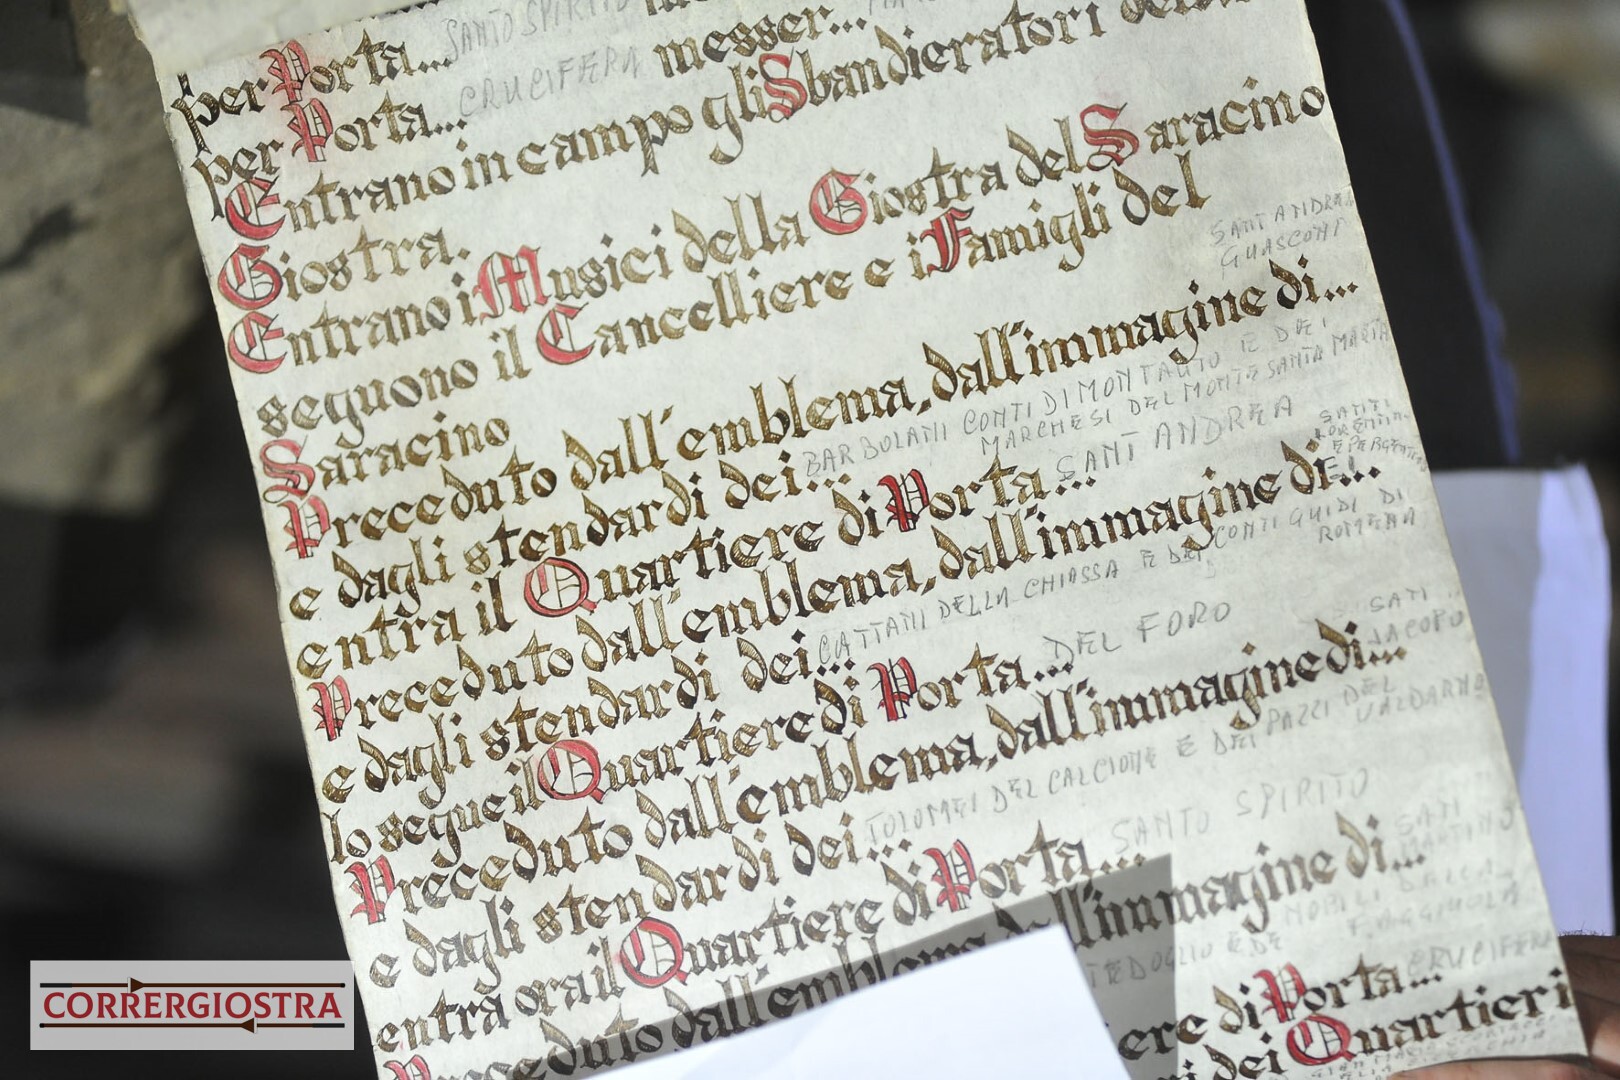 per Porta... SANTO SPIRITO
per Porta... CRUCIFERA messer...
Entrano in campo gli Sbandieratori della
Giostra.
Entrano i Musici della Giostra del Saracino
seguono il Cancelliere e i Famigli del
Saracino
SANT ANDREA
GUASCONI
Preceduto dall'emblema, dall'immagine di...
e dagli stendardi dei... BARBOLANI CONTI DI MONTAUTO E DEI
MARCHESI DEL MONTE SANTA MARIA
entra il Quartiere di Porta... SANT ANDREA
SANTI
LORENTINO
E PERGENTINO
Preceduto dall'emblema, dall'immagine di...
e dagli stendardi dei... CATTANI DELLA CHIASSA E DEI CONTI GUIDI DI
ROMENA
lo segue il Quartiere di Porta... DEL FORO
SAN
JACOPO
Preceduto dall'emblema, dall'immagine di...
e dagli stendardi dei... TOLOMEI DEL CALCIONE E DEI PAZZI DEL
VALDARNO
entra ora il Quartiere di Porta... SANTO SPIRITO
SAN
MARTINO
Preceduto dall'emblema dall'immagine di...
NOBILI DELLA
FAGGIUOLA
ere di Porta... CRUCIFERA
dei Quartieri
CORRERGIOSTRA